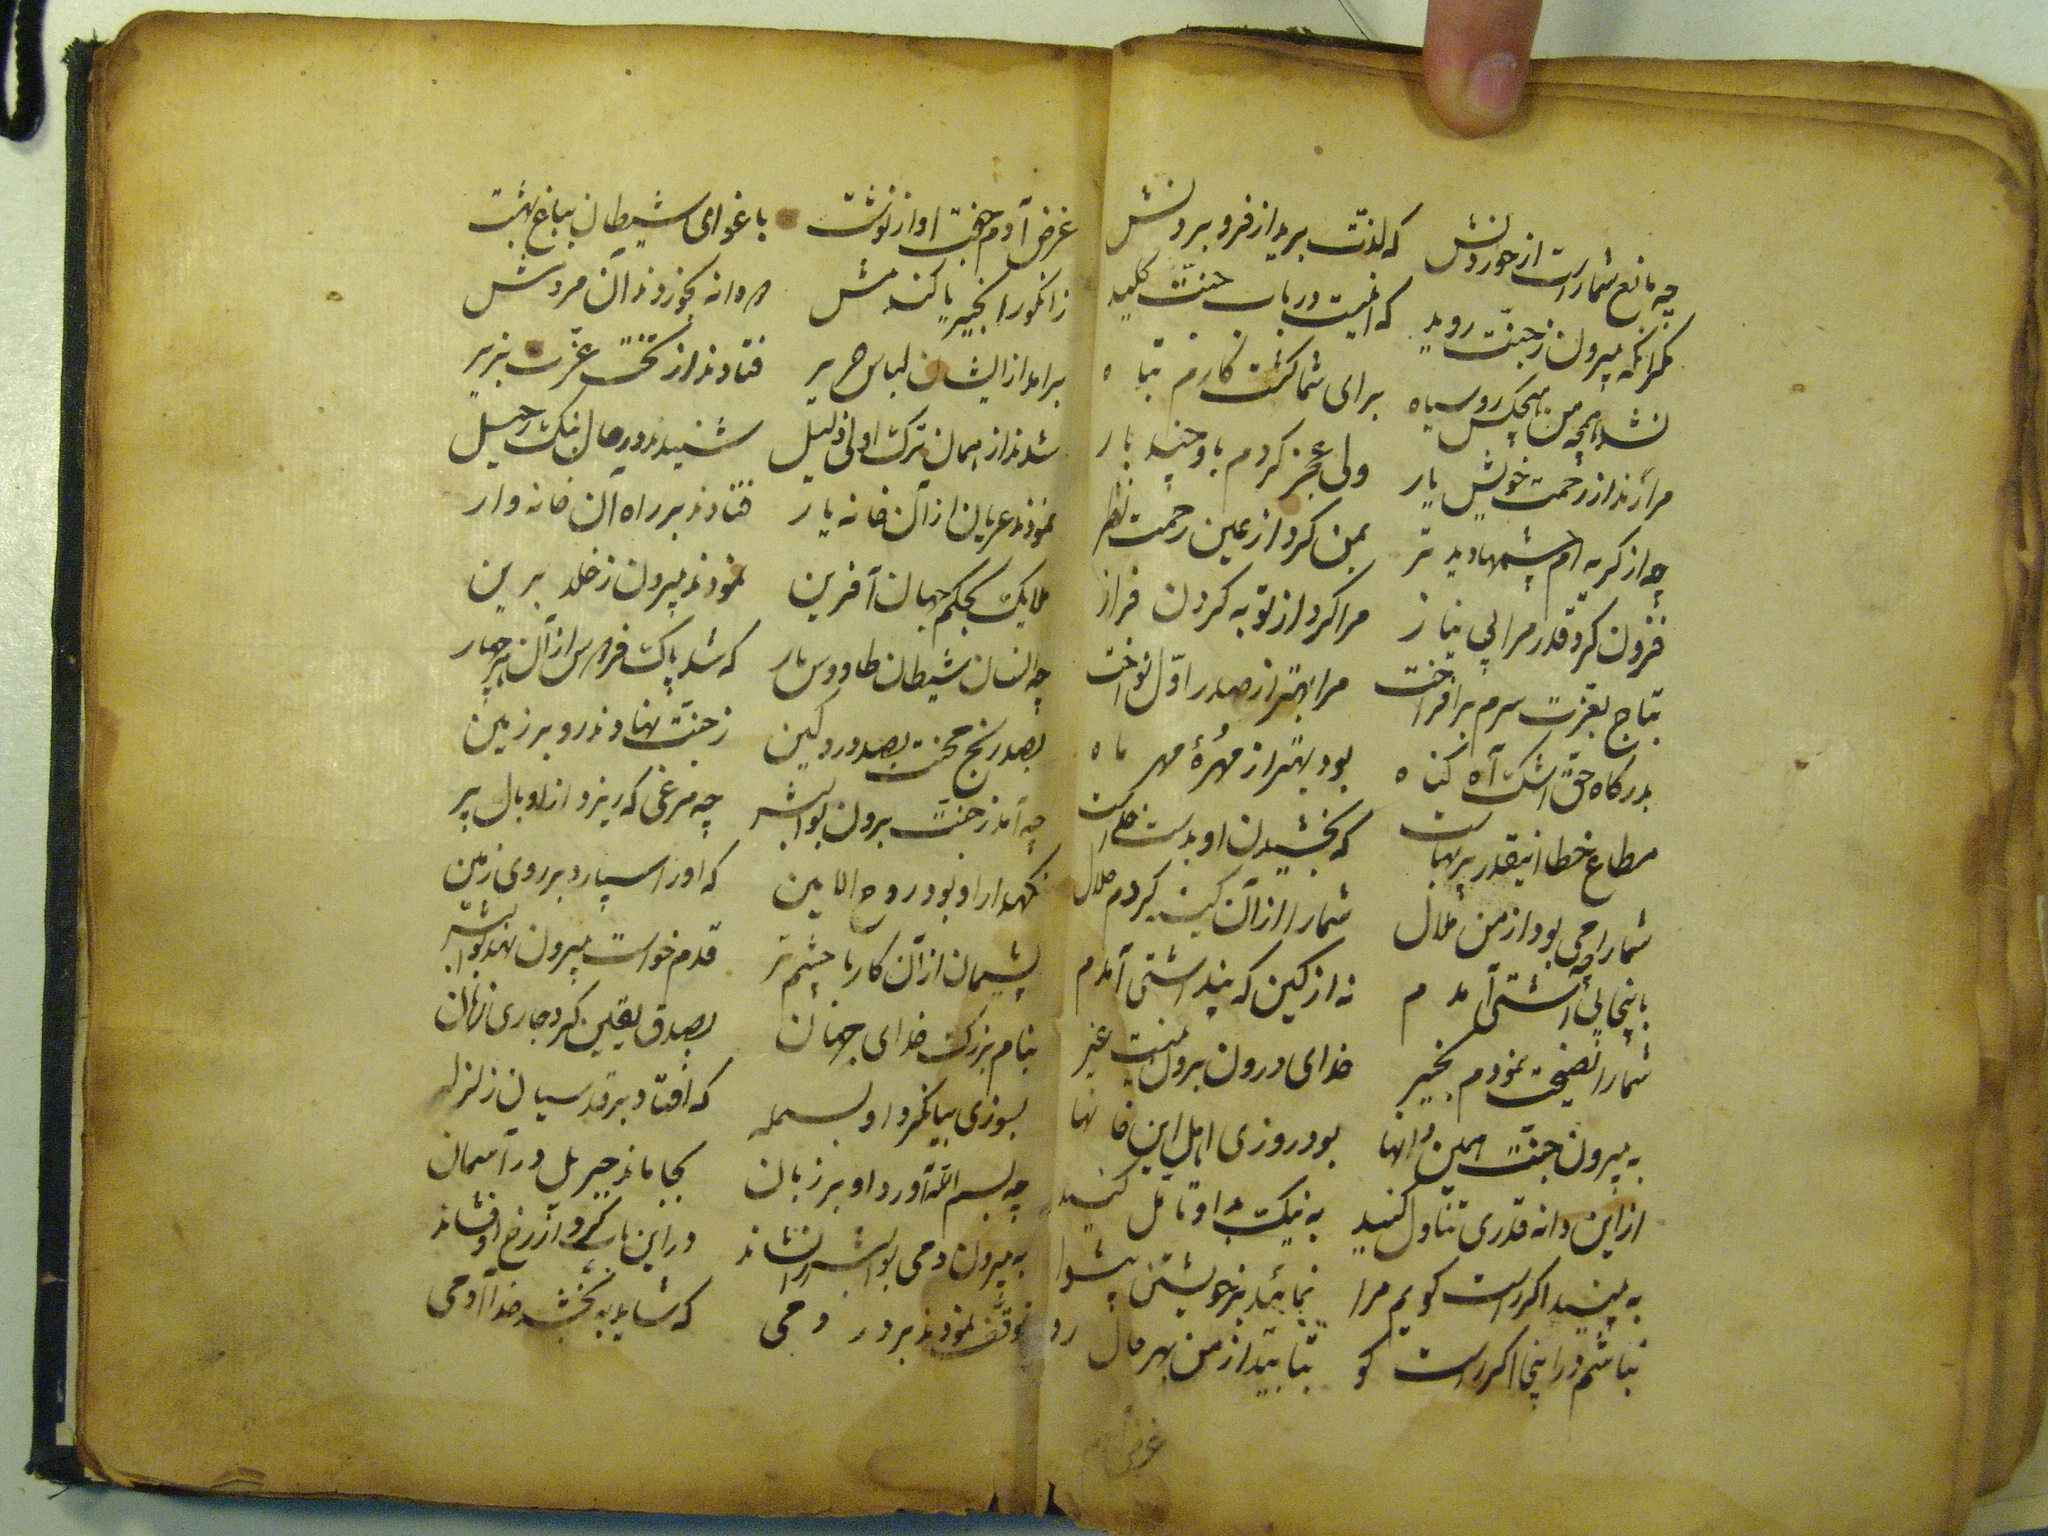 چه مانع شماراست از خوردنش که لذت برید از فرو بردنش
مگر آنکه بیرون ز جنت روید که اینست در باب جنت کلید
نشد همچه من هیچکس روسیاه برای شما گشت کارم تباه
مرا راند از رحمت خویش یار ولی عجز کردم باو چند بار
چه از گریه ام چشمها دید تر بمن کرد از عین رحمت نظر
فزون کرد قدر مرا بی نیاز مرا کرد از توبه کردن فراز
بتاج بعزت سرم برافراخت مرا بهتر از صدر اول نواخت
بدرکاه حق اشک آه کناه بود بهتر از مهرهٔ مهر ماه
مطاع خطا اینقدر پربهاست که بخشیدن او بدست خداست
شما را چه بود از من ملال شما را از آن کینه کردم حلال
باینجا پی آشتی آمدم نه از کین که پنداشتی آمدم
شما را نصیحت نمودم بخیر خدای درون برون نیست غیر
به بیرون جنت همین دانها بود روزی اهل این خانها
از این دانه قدری تناول کنید به نیک بد او تأمل کنید
به بینید اکر راست کویم مرا نمائید بر خویشتن پیشوا
نباشم در اینجا اکر راست کو بتابید از من بهر حال رو
غرض آدم
غرض آدم جفت او از نوشت باغوای شیطان بباغ بهشت
ز انکور انجیر یا کندمش دو دانه بخوردند آن مردمش
برآمد از ایشان لباس حریر فتادند از تخت عزت بزیر
شدند از همان ترک اولی ذلیل شنیدند در حال بانک رحیل
نمودند عریان از آن خانه یار فتادند بر راه آن خانه وار
ملایک بحکم جهان آفرین نمودند بیرون ز خلد برین
چه انسان شیطان طاووس مار که شد پاک فردوس از آن هر چهار
بصد رنج محنت بصد درد کین ز جنت نهادند رو بر زمین
چه آمد ز جنت برون بوالبشر چه مرغی که ریزد از او بال پر
نکهدار او بود روح الامین که او را سپارد بر روی زمین
پشیمان از آن کار با چشم تر قدم خواست بیرون نهد بوالبشر
بنام بزرک خدای جهان بصدق یقین کرد جاری زبان
بسوزی بیان کرد او بسمله که افتاد بر قدسیان زلزله
چه بسم الله آورد او بر زبان بجا ماند جبریل در آسمان
به بیرون دمی بوالبشر را نشاند در این باب کرد از رخ او فشاند
توقف نمودند بر در دمی که شاید به بخشد خدا آدمی